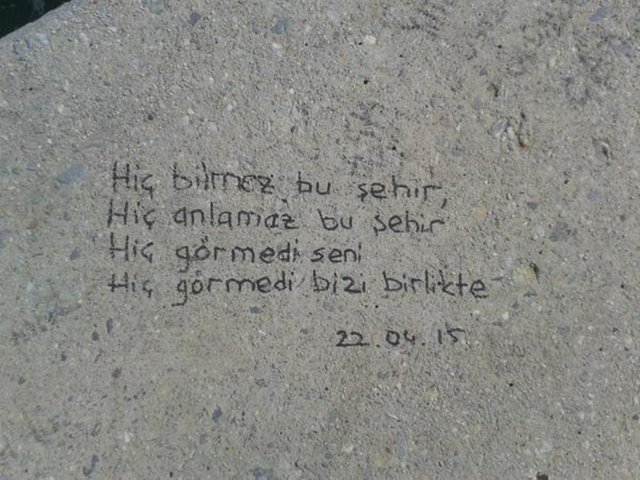 Hiç bilmez bu şehir,
Hiç anlamaz bu şehir
Hiç görmedi seni
Hiç görmedi bizi birlikte
22.04.15